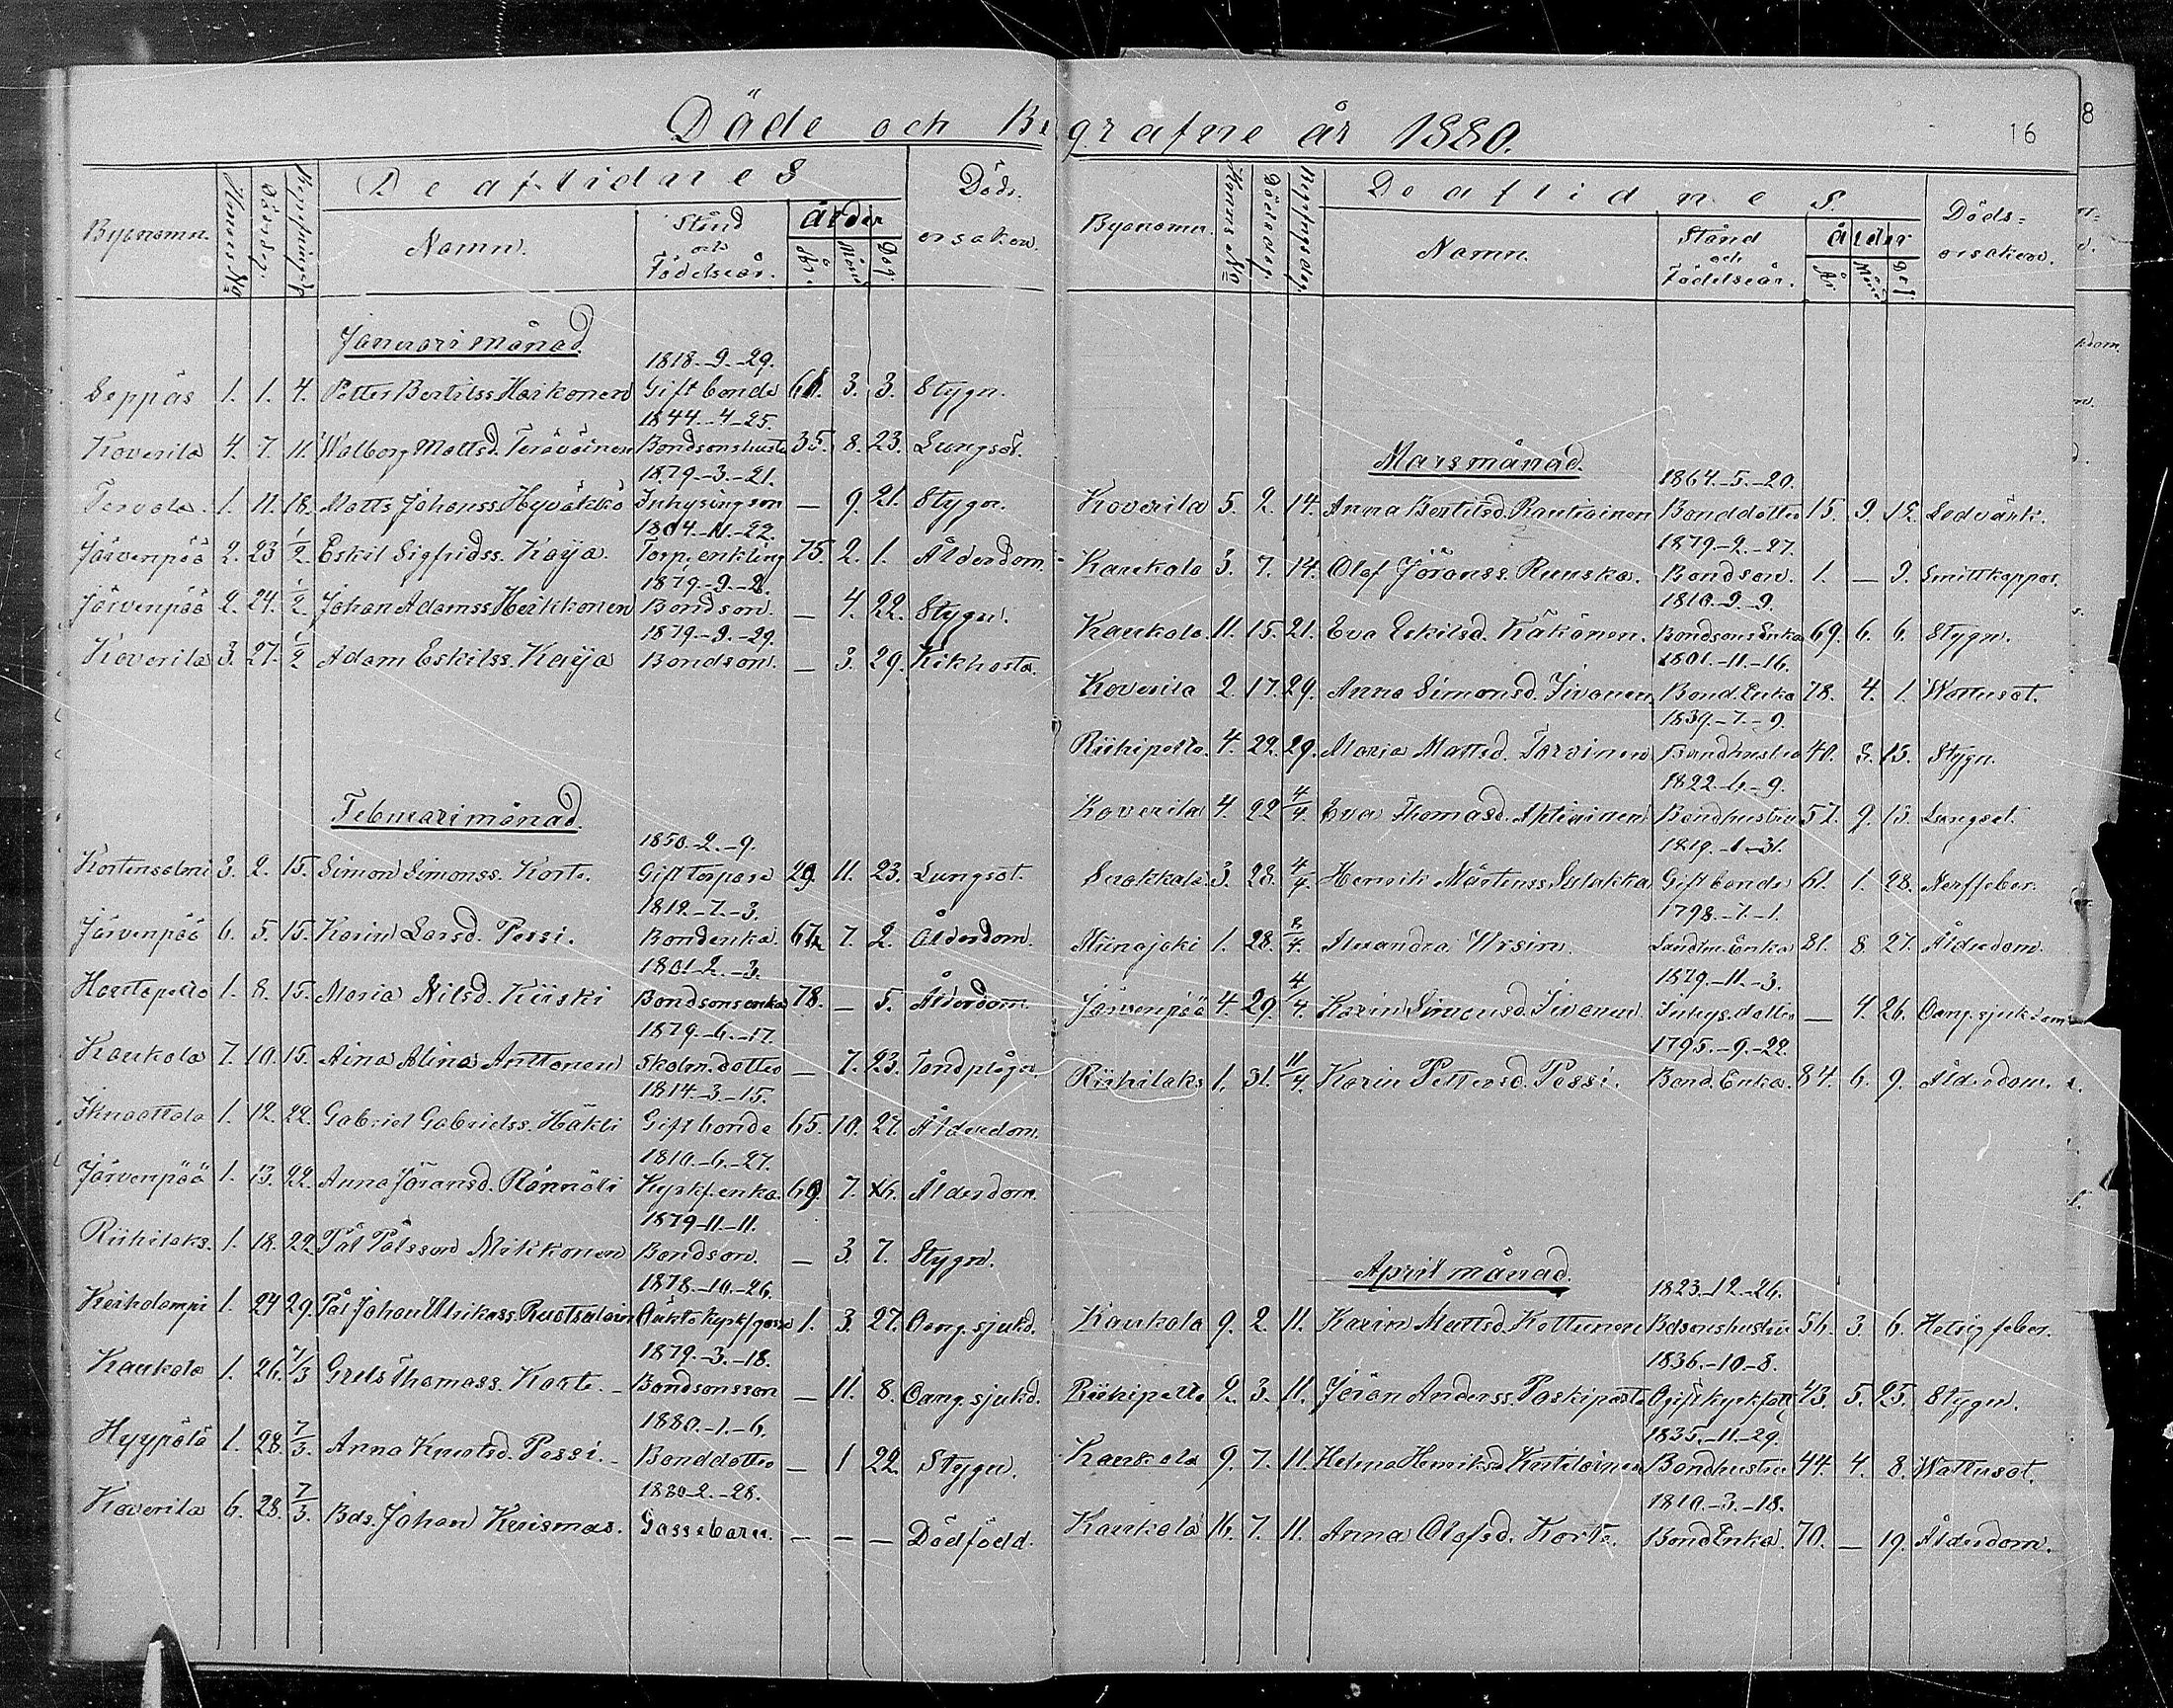 Döde och Begrafne år 1880.
16
8
De aflidnes
Byanamn.
Hemms No
Dödsdag.
Begrafningsd.
Namn.
Stånd
och
Födelseår.
ålder
År.
Mån.
Dag.
Döds-
orsaken.
Januari månad.
1818.-9.-29.
Seppäs 1. 1. 4. Petter Bertilss. Heikonen Gift bonde 61. 3. 3. Stygn.
1844.-4-25.
Koverila 4. 7. 11. Walborg Mattsd. Teräväinen Bondsonshustru 35. 8. 23. Lungsot.
1879.-3.-21.
Tervola. 1. 11. 18. Matts Johanss. Hyväkkö Inhysing son — 9. 21. Stygn.
1804.-11.-22.
Järvenpää 2. 23 1/2 Eskil Sigfridss. Kaija. Torp. enkling 75. 2. 1. Ålderdom.
1879.-9.-2.
Järvenpää 2. 24. 1/2 Johan Adamss. Heikkonen Bondson. — 4. 22. Stygn.
1879.-9.-29.
Koverila 3. 27. 1/2 Adam Eskilss. Kaija Bondson. — 3. 29. Kikhosta.
Februari månad.
1850.-2.-9.
Kortensalmi 3. 2. 15. Simon Simonss. Korte. Gift torpare 29. 11. 23. Lungsot.
1812.-7.-3.
Järvenpää 6. 5. 15. Karin Larsd. Pessi. Bondenka. 67. 7. 2. Ålderdom.
1801.-2.-3.
Hautapelto 1. 8. 15. Maria Nilsd. Kiiski Bondsonsenka 78. — 5. Ålderdom.
1879.-6.-17.
Kaukola 7. 10. 15. Aina Alina Anttonen Skolm. dotter — 7. 23. Tandplågn.
1814.-3.-15.
Iknoottala 1. 12. 22. Gabriel Gabrielss. Häkli Gift bonde 65. 10. 27. Ålderdom.
1810.-6.-27.
Järvenpää 1. 13. 22. Anna Jöransd. Rännäli Kyrkf. enka. 69. 7. 16. Ålderdom.
1879-11.-11.
Riihilaks. 1. 18. 22. Pål Pålsson Mikkonen Bondson. — 3. 7. Stygn.
1878.-10.-26.
Keiholampi 1. 24 29. Pål Johan Ulrikass. Ruotsalain Oäkta kyrkf gosse 1. 3. 27. Oang. sjukd.
1879.-3.-18.
Kaukola 1. 26. 7/3 Grels Thomass. Korte. Bondsonsson — 11. 8. Oang. sjukd.
1880.-1.-6.
Hyypälä 1. 28. 7/3. Anna Knutsd. Pessi. Bonddotter — 1 22. Stygn.
1880-2.-28.
Koverila 6. 28. 7/3. Bds. Johan Kuismas. Gossebarn. — — — Dödfödd.
De aflidnes.
Byanamn.
Hemms No
Dödsdag.
Begrfngsdag.
Namn.
Stånd
och
Födelseår.
ålder
År.
Mån.
Dag.
Döds=
orsaken.
Mars månad.
1864.-5.-20.
Koverila 5. 2. 14. Anna Bertilsd. Rautiainen Bonddotter 15. 9. 12. Ledvärk.
1879-2.-27.
Kaukola 3. 7. 14. Olof Jöranss. Ruuska. Bondson. 1. — 9. Smittkoppor.
1810.-9.-9.
Kaukola. 11. 15. 21. Eva Eskilsd. Käkönen. Bondsons Enka 69. 6. 6. Stygn.
1801.-11.-16.
Koverila 2. 17. 29. Anna Simonsd. Iivonen Bond. Enka 78. 4. 1. Wattusot.
1839.-7.-9.
Riihipelto. 4. 22. 29. Maria Mattsd. Torvinen Bondhustru 40. 8. 13. Stygn.
1822.-6.-9.
Koverila 4. 22 4/4. Eva Thomasd. Ahtiainen Bondhustru 57. 9. 13. Lungsot.
1819.-1-31.
Suokkala. 3. 28. 4/4. Henrik Mårtenss. Gift bonde 61. 1. 28. Nerffeber.
1798.-7.-1.
Miinajoki 1. 28. Alexandra Ursin. Enka 81. 8 27. Ålderdom.
1879.-11.-3.
Järvenpää 4. 29. 4/4. Karin Simonsd. Iivonen. Inhys. dotter — 4. 26. Oang. sjukdom
1795.-9.-22.
Riihilaks 1. 31. 11/4. Karin Pettersd. Pessi. Bond. Enka. 84. 6. 9. Ålderdom.
April månad.
1823.-12.-26.
Kaukola 9. 2. 11. Karin Mattsd. Kottunen Bdsonshustru 56. 3. 6. Hetsig feber.
1836.-10-8.
Riihipelto 2. 3. 11. Jöran Anderss. Paskiparta Ogift kyrkfatt. 43. 5. 25. Stygn.
1835.-11.-29.
Kaukola 9. 7. 11. Helena Henriksd. Kostilainen Bondhustru 44. 4. 8. Wattusot.
1810.-3.-18.
Kaukola 16. 7. 11. Anna Olofsd. Korte. Bond Enka. 70. — 19. Ålderdom.